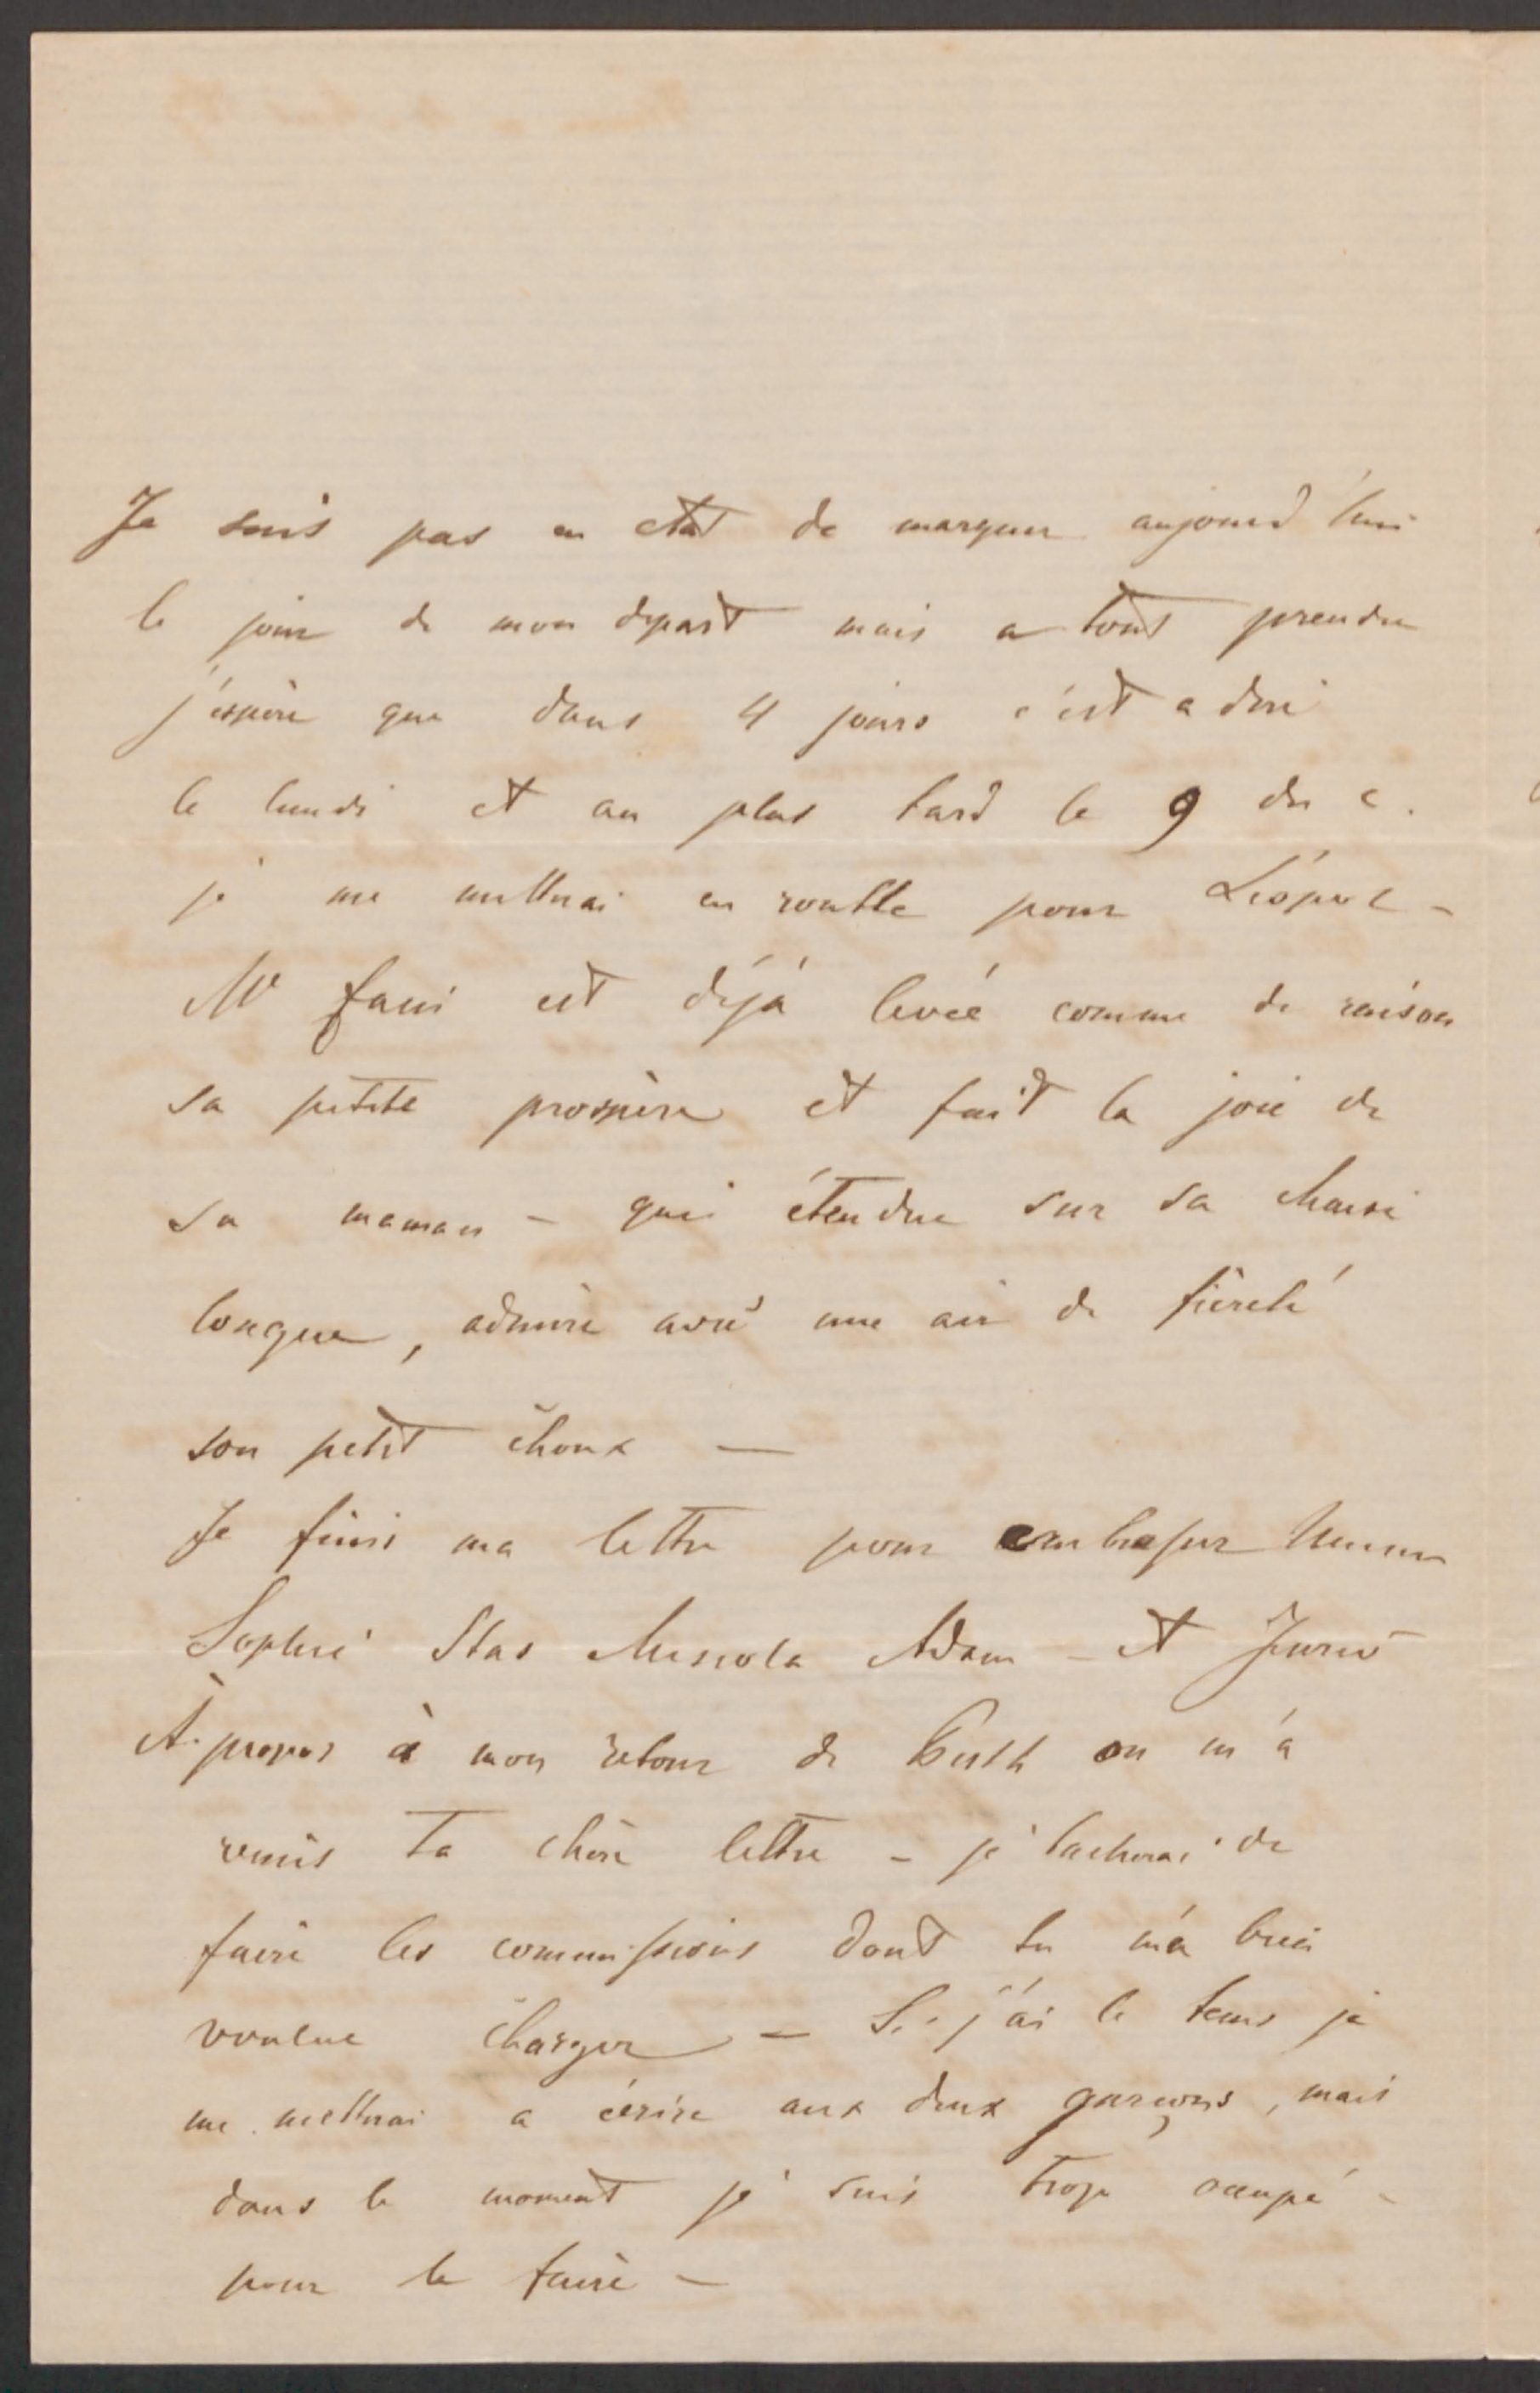 Je suis pas en état de marquer aujourd'hui
le jour de mon depart mais a tout prendre
j'espère que dans 4 jours c'est a dire
le lundi et au plus tard le 9 du c.
je me metterai en routte pour Léopol -
Me Fani est déjà levée comme de raison
sa petite prospère et fait la joie de
sa maman - qui étendue sur sa chaise
longue, admire avec une air de fièreté
son petit choux —
Je finis ma lettre pour embrasser
Sophie Stas Adam - et
A propos à mon retour de on m'a
remis ta chère lettre - je tacherai de
faire les commissions dont tu m'a bien
voulue charger - Si j'ai le tems je
me metterai a écrire aux deux garçons, mais
dans le moment je suis trop occupé -
pour le faire -